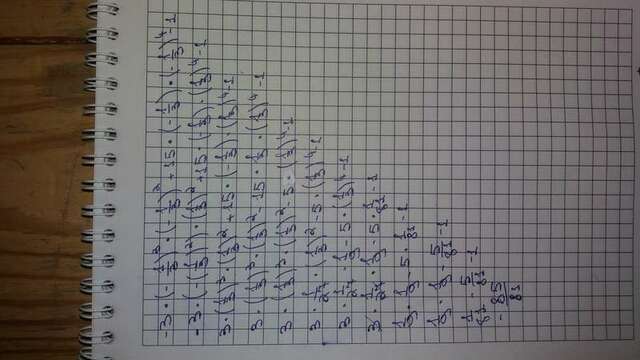 -3·(-1/3)³·(-1/3)²+15·(-1/3)·(-1/3)⁴-1
-3·(-(1/3)³)·(1/3)²+15·(-1/3)·(1/3)⁴-1
3·(1/3)³·(1/3)²+15·(-1/3)·(1/3)⁴-1
3·(1/3)³·(1/3)²-15·1/3·(1/3)⁴-1
3·(1/3)³·(1/3)²-5·(1/3)⁴-1
3·1/27·(1/3)²-5·(1/3)⁴-1
3·1/27·1/9-5·(1/3)⁴-1
3·1/27·1/9-5·1/81-1
1/9·1/9-5·1/81-1
1/9·1/9-5/81-1
1/81-5/81-1
-85/81